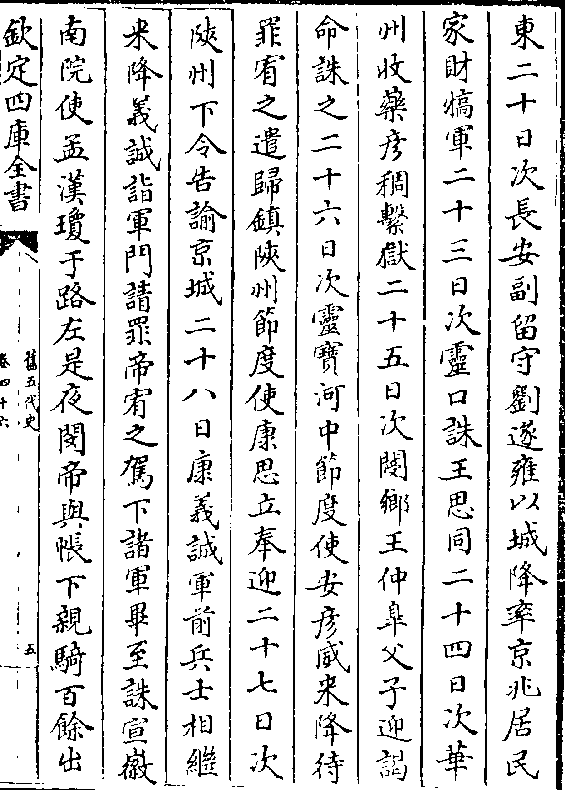 東二十日次長安副留守劉遂雍以城降率京兆居民
家財犒軍二十三日次靈口誅王思同二十四日次華
州收藥彥稠繫獄二十五日次閿鄉王仲臯父子迎謁
命誅之二十六日次靈寳河中節度使安彥威来降待
罪宥之遣歸鎮陜州節度使康思立奉迎二十七日次
陜州下令告諭京城二十八日康義誠軍前兵士相繼
来降義誠詣軍門請罪帝宥之駕下諸軍畢至誅宣徽
南院使孟漢瓊于路左是夜閔帝與帳下親騎百餘出
欽定四庫全書
舊五代史
卷四十六
五